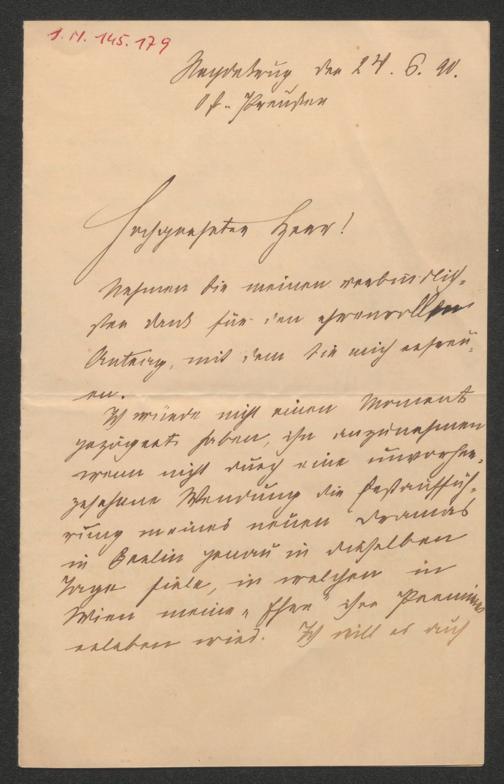 I.N. 145.179
Heydekrug, den 24. 6. 90.
Ost-Preußen
Hochgeehrter Herr!
Nehmen Sie meinen verbindlich-
sten Dank für den ehrenvollen
Antrag, mit dem Sie mich erfreu-
en.
Ich würde nicht einen Moment
gezögert haben, ihn anzunehmen
wenn nicht durch eine unvorher-
gesehene Wendung die Erstauffüh-
rung meines neuen Dramas
in Berlin genau in dieselben
Tage fiele, in welchen in
Wien meine „Ehre“ ihre Premiere
erleben wird. Ich will es auch